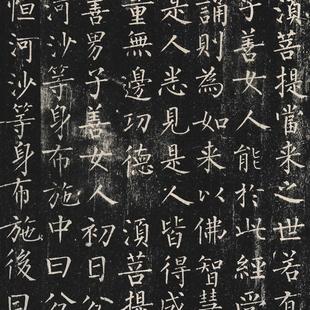 湏菩提當来之世若有
子善女人能於此經受
誦則為如来以佛智慧
是人悉見是人皆得成
量無邊功德 湏菩提
善男子善女人初日分
河沙等身布施中日分
恒河沙等身布施後日